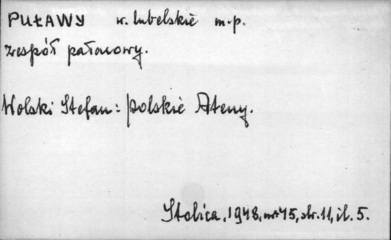 PUŁAWY w. lubelskie m.p.
zespół pałacowy.
Wolski Stefan: polskie Ateny.
Stolica, 1948, nr 45, str. 11, il. 5.